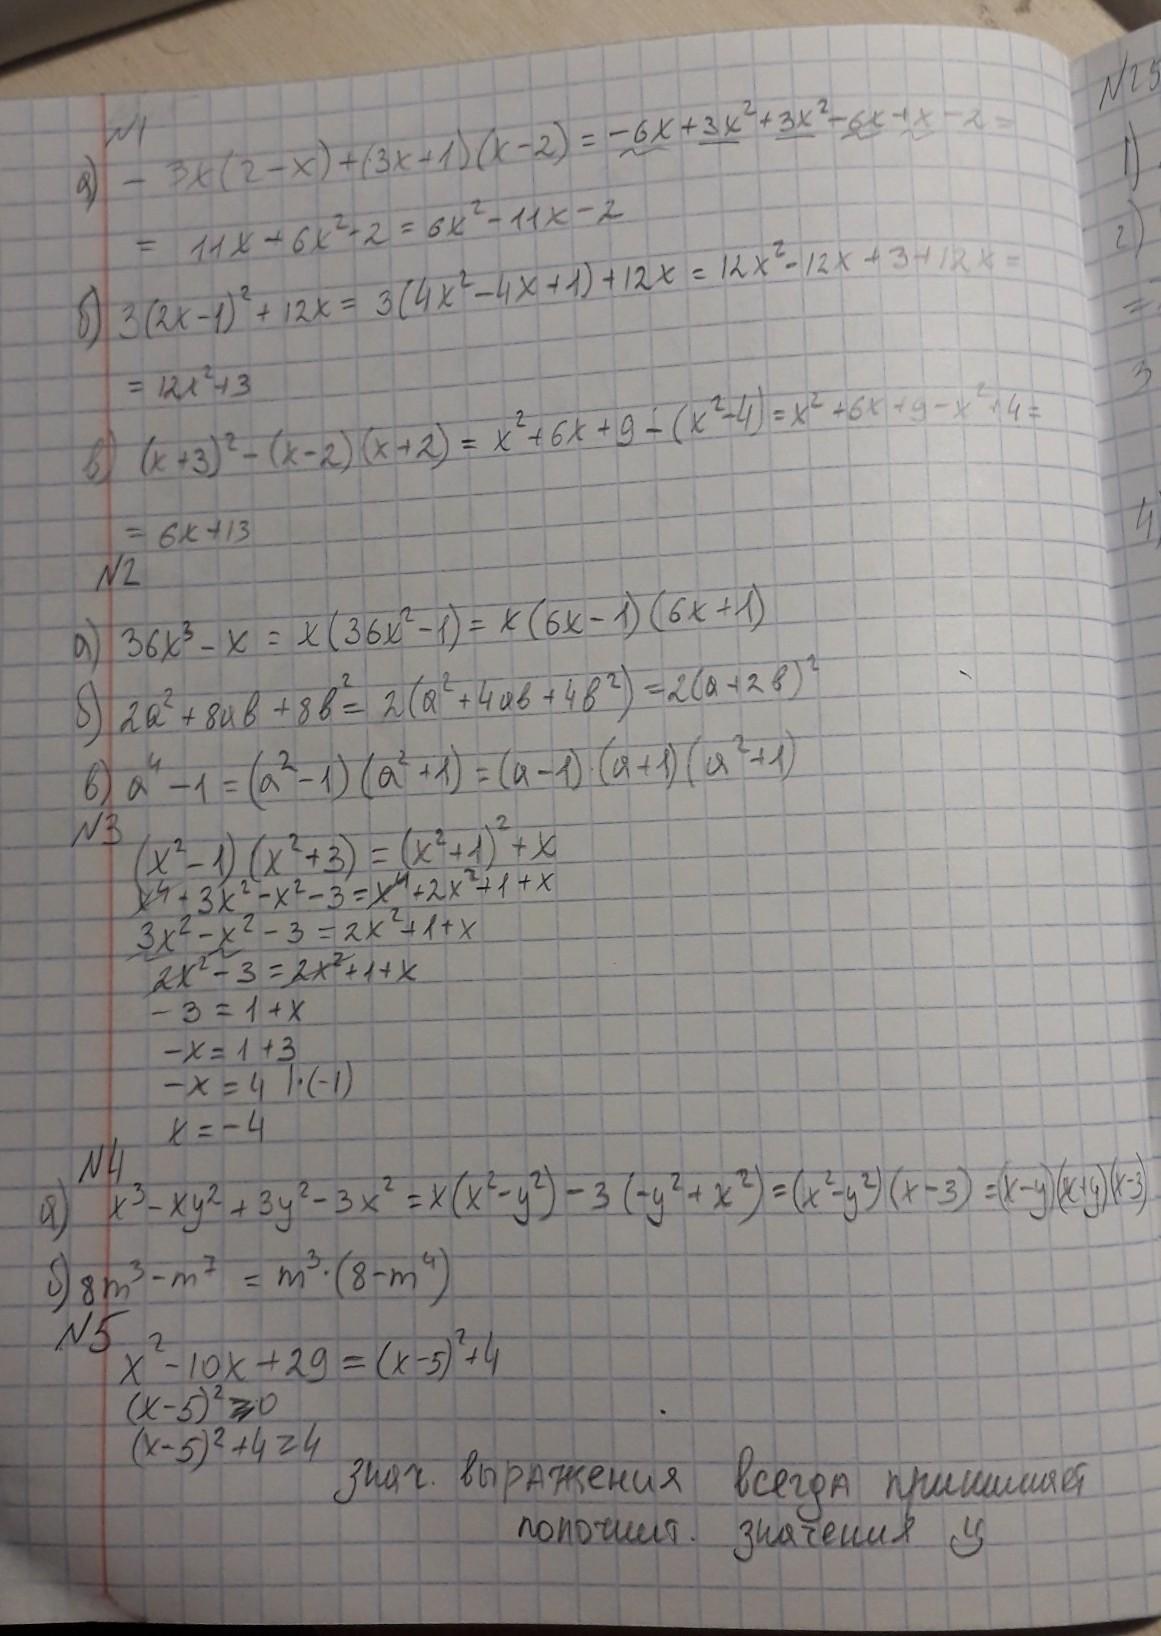 N1
а) - 3x(2-x)+(3x+1)(x-2) = -6x+3x²+3x²-6x+x-2=
= 11x+6x²-2 = 6x²-11x-2
б) 3(2x-1)²+12x= 3(4x²-4x+1)+12x = 12x²-12x+3+12x =
= 12x²+3
в) (x+3)²-(x-2)(x+2) = x²+6x+9-(x²-4)=x²+6x+9-x²+4=
= 6x+13
N2
а) 36x³-x = x(36x²-1)= x(6x-1)(6x+1)
б) 2a²+8ab+8b²= 2(a²+4ab+4b²)=2(a+2b)²
в) a⁴-1=(a²-1)(a²+1)=(a-1)·(a+1)(a²+1)
N3
(x²-1)(x²+3)=(x²+1)²+x
x⁴+3x²-x²-3=x⁴+2x²+1+x
3x²-x²-3=2x²+1+x
2x²-3=2x²+1+x
-3=1+x
-x=1+3
-x=4 |·(-1)
x=-4
N4
а) x³-xy²+3y²-3x²=x(x²-y²)-3(-y²+x²)=(x²-y²)(x-3)=(x-y)(x+y)(x-3)
б) 8m³-m⁷ = m³·(8-m⁴)
N5
x²-10x+29=(x-5)²+4
(x-5)²≥0
(x-5)²+4≥4
знач. выражения всегда принимает
положит. значения
N25
1)
2)
=
3
4)